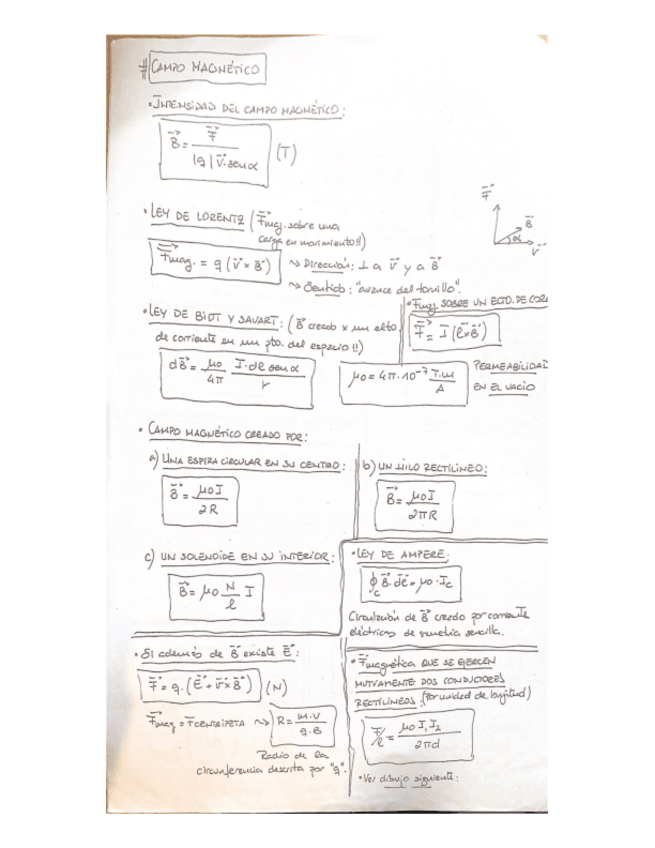 # CAMPO MAGNÉTICO
• INTENSIDAD DEL CAMPO MAGNÉTICO:
B⃗ = F⃗ / |q| v⃗·sen α (T)
• LEY DE LORENTZ (F⃗mag. sobre una
carga en movimiento!!)
F⃗mag. = q (v⃗ × B⃗)
↝ Dirección: ⊥ a v⃗ y a B⃗
↝ Sentido: "avance del tornillo".
F⃗
B⃗
α
v⃗
• Fmag. SOBRE UN ECTO. DE COR
F⃗ = I (l⃗ × B⃗)
• LEY DE BIOT Y SAVART: (B⃗ creado x un elto
de corriente en un pto. del espacio!!)
dB⃗ = μ0/4π I·dl sen α / r
μ0 = 4π·10⁻⁷ T·m/A
PERMEABILIDAD
EN EL VACIO
• CAMPO MAGNÉTICO CREADO POR:
a) UNA ESPIRA CIRCULAR EN SU CENTRO:
B⃗ = μ0I / 2R
b) UN HILO RECTILÍNEO:
B⃗ = μ0I / 2πR
c) UN SOLENOIDE EN SU INTERIOR:
B⃗ = μ0 N/l I
• LEY DE AMPERE:
∮c B⃗·dl⃗ = μ0·Ic
Circulación de B⃗ creado por corriente
eléctricas de simetría sencilla.
• Si además de B⃗ existe E⃗:
F⃗ = q·(E⃗ + v⃗ × B⃗) (N)
F⃗mag = F CENTRIPETA ↝ R = m·v / q·B
Radio de la
circunferencia descrita por "q".
• F⃗magnética QUE SE EJERCEN
MUTUAMENTE DOS CONDUCTORES
RECTILÍNEOS: (Por unidad de longitud)
F/l = μ0 I1 I2 / 2πd
• Ver dibujo siguiente: